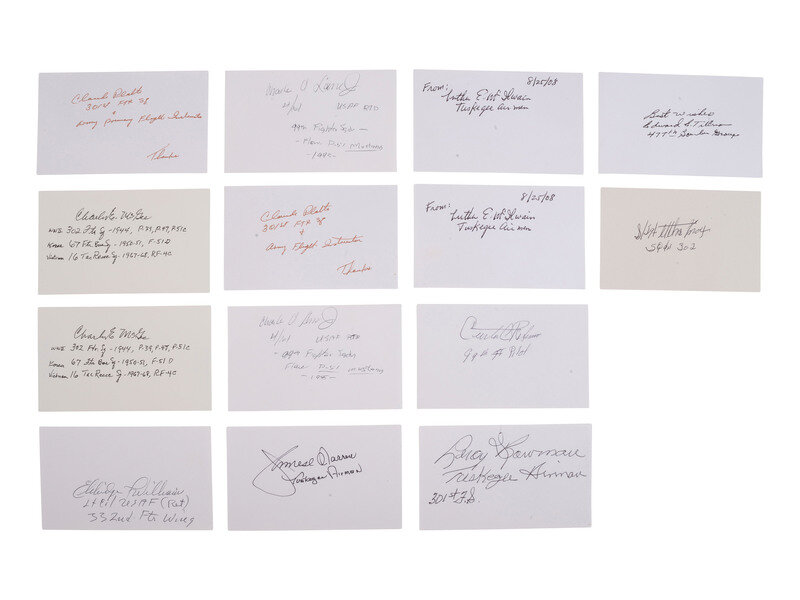 Claude Platts
301st Ftr Sq
+
Army Primary Flight Instructor
Thanks
USAF
99th Fighter Sqdn
Flew P-51 Mustang
1945
8/25/08
From: Luther E. McIlwain
Tuskegee Airmen
Best Wishes
Edward S Tillman
477th Bomber Group
Charles E. McGee
WWII 302 Ftr Sq - 1944, P-39, P-47, P-51C
Korea 67 Ftr Bom Sq - 1950-51, F-51D
Vietnam 16 Tac Recce Sq - 1967-68, RF-4C
Claude Platts
301st Ftr Sq
+
Army Flight Instructor
Thanks
8/25/08
From: Luther E. McIlwain
Tuskegee Airmen
302
Charles E. McGee
WWII 302 Ftr Sq - 1944, P-39, P-47, P-51C
Korea 67 Ftr Bom Sq - 1950-51, F-51D
Vietnam 16 Tac Recce Sq - 1967-68, RF-4C
USAF
99th Fighter Sqdn
Flew P-51 Mustang
1945
Pilot
Eldridge Williams
Lt Col USAF (Ret)
332nd Ftr Wing
Tuskegee Airman
Leroy Bowman
Tuskegee Airman
301st F.S.